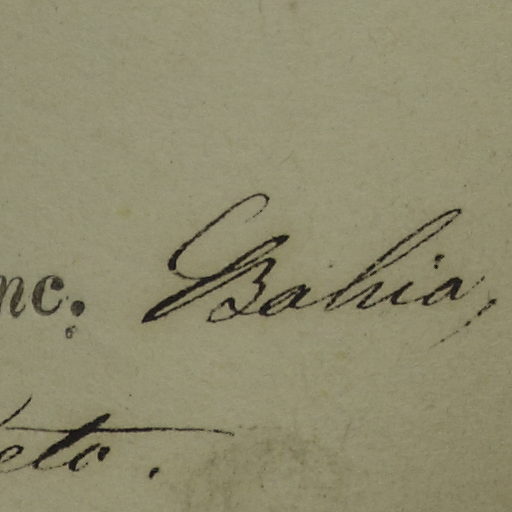 nc. Bahia,
eto.